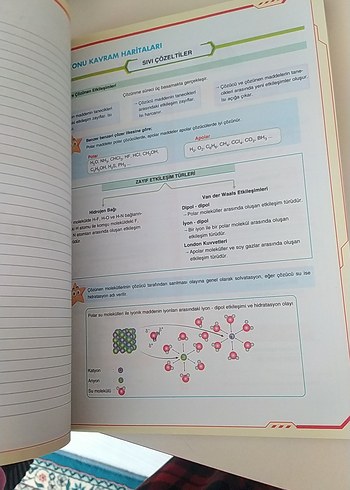 ONU KAVRAM HARİTALARI
SIVI ÇÖZELTİLER
Çözünen Etkileşimleri
Çözünme süreci üç basamakta gerçekleşir.
maddenin tanecikleri
etkileşim zayıflar.
- Çözücü maddenin tanecikleri
arasındaki etkileşim zayıflar.
Isı harcanır.
- Çözücü ve çözünen maddelerin tane-
cikleri arasında yeni etkileşimler oluşur.
Isı açığa çıkar.
Benzer benzeri çözer ilkesine göre;
Polar maddeler polar çözücülerde, apolar maddeler apolar çözücülerde iyi çözünür.
Polar
H₂O, NH₃, CHCl₃, HF, HCl, CH₃OH,
C₂H₅OH, H₂S, PH₃ ...
Apolar
H₂, O₂, C₆H₆, CH₄, CCl₄, CO₂, BH₃ ...
ZAYIF ETKİLEŞİM TÜRLERİ
Hidrojen Bağı
moleküllerde H-F, H-O ve H-N bağların-
H atomu ile komşu moleküldeki F,
atomları arasında oluşan etkileşim
Van der Waals Etkileşimleri
Dipol - dipol
→ Polar moleküller arasında oluşan etkileşim türüdür.
İyon - dipol
→ Bir iyon ile bir polar molekül arasında oluşan
etkileşim türüdür.
London Kuvvetleri
→ Apolar moleküller ve soy gazlar arasında oluşan
etkileşim türüdür.
Çözünen moleküllerinin çözücü tarafından sarılması olayına genel olarak solvatasyon, eğer çözücü su ise
hidratasyon adı verilir.
Polar su molekülleri ile iyonik maddenin iyonları arasındaki iyon - dipol etkileşimi ve hidratasyon olayı
Katyon
Anyon
Su molekülü